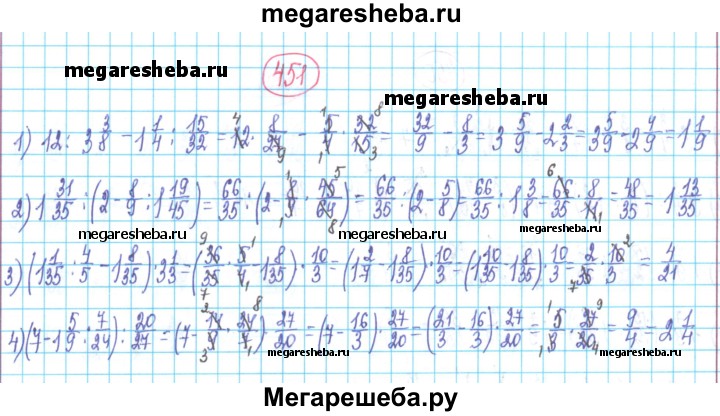 megaresheba.ru
megaresheba.ru
451
megaresheba.ru
1) 12 : 3 3/8 - 1 1/4 : 15/32 = 12 · 8/27 - 5/4 · 32/15 = 32/9 - 8/3 = 3 5/9 - 2 2/3 = 3 5/9 - 2 4/9 = 1 1/9
2) 1 31/35 : (2 - 8/9 : 1 19/45) = 66/35 : (2 - 8/9 · 45/64) = 66/35 : (2 - 5/8) = 66/35 : 1 3/8 = 66/35 · 8/11 = 48/35 = 1 13/35
megaresheba.ru
megaresheba.ru
3) (1 1/35 : 4/5 - 1 8/35) : 3/3 = (36/35 · 5/4 - 1 8/35) · 10/3 = (1 2/7 - 1 8/35) · 10/3 = (1 10/35 - 1 8/35) · 10/3 = 2/35 · 10/3 = 4/21
4) (7 - 1 5/9 : 7/24) : 20/27 = (7 - 14/9 · 24/7) · 27/20 = (7 - 16/3) · 27/20 = (21/3 - 16/3) · 27/20 = 5/3 · 27/20 = 9/4 = 2 1/4
megaresheba.ru
megaresheba.ru
Мегарешеба.ру